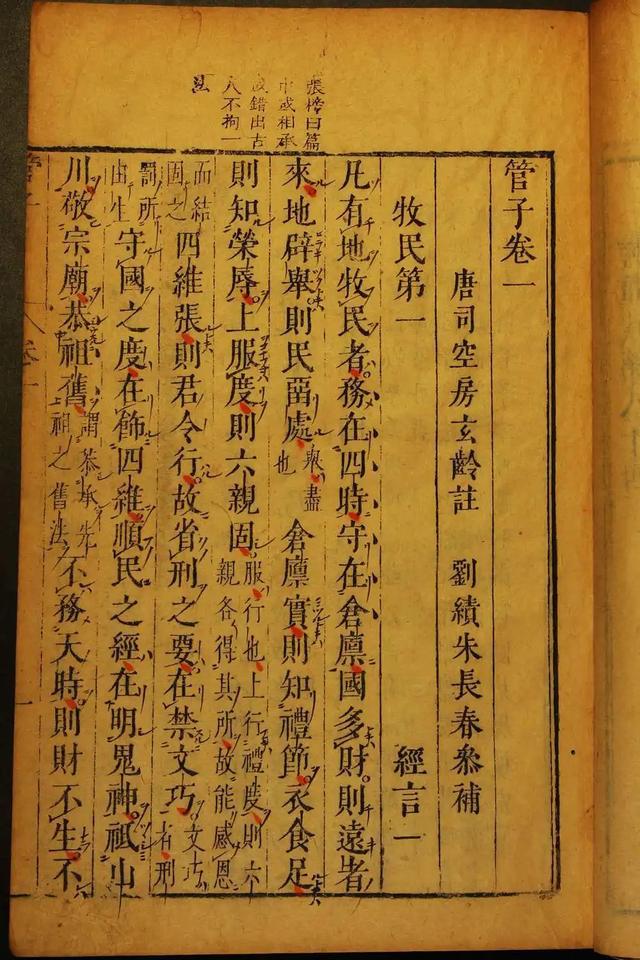 張榜曰篇
中或相承
或錯出古
人不拘一
管子卷一
唐司空房玄齡註 劉績朱長春叅補
牧民第一 經言一
凡有地牧民者務在四時守在倉廩國多財則遠者
來地辟舉則民畱處舉盡也倉廩實則知禮節衣食足
則知榮辱上服度則六親固服行也上行禮度則六親各得其所故能感恩
而結固之四維張則君令行故省刑之要在禁文巧文巧者刑
罰所由生守國之度在飾四維順民之經在明鬼神祗山
川敬宗廟恭祖舊謂恭承先祖之舊法不務天時則財不生不